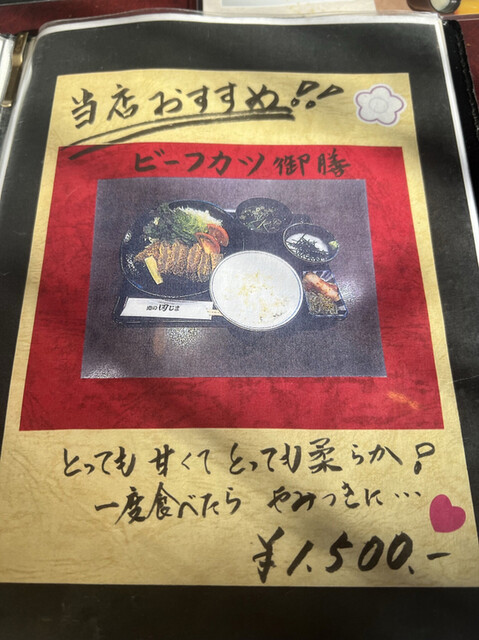 当店おすすめ!!
ビーフカツ御膳
とっても甘くてとっても柔らか!
一度食べたら やみつきに…
¥1,500.-